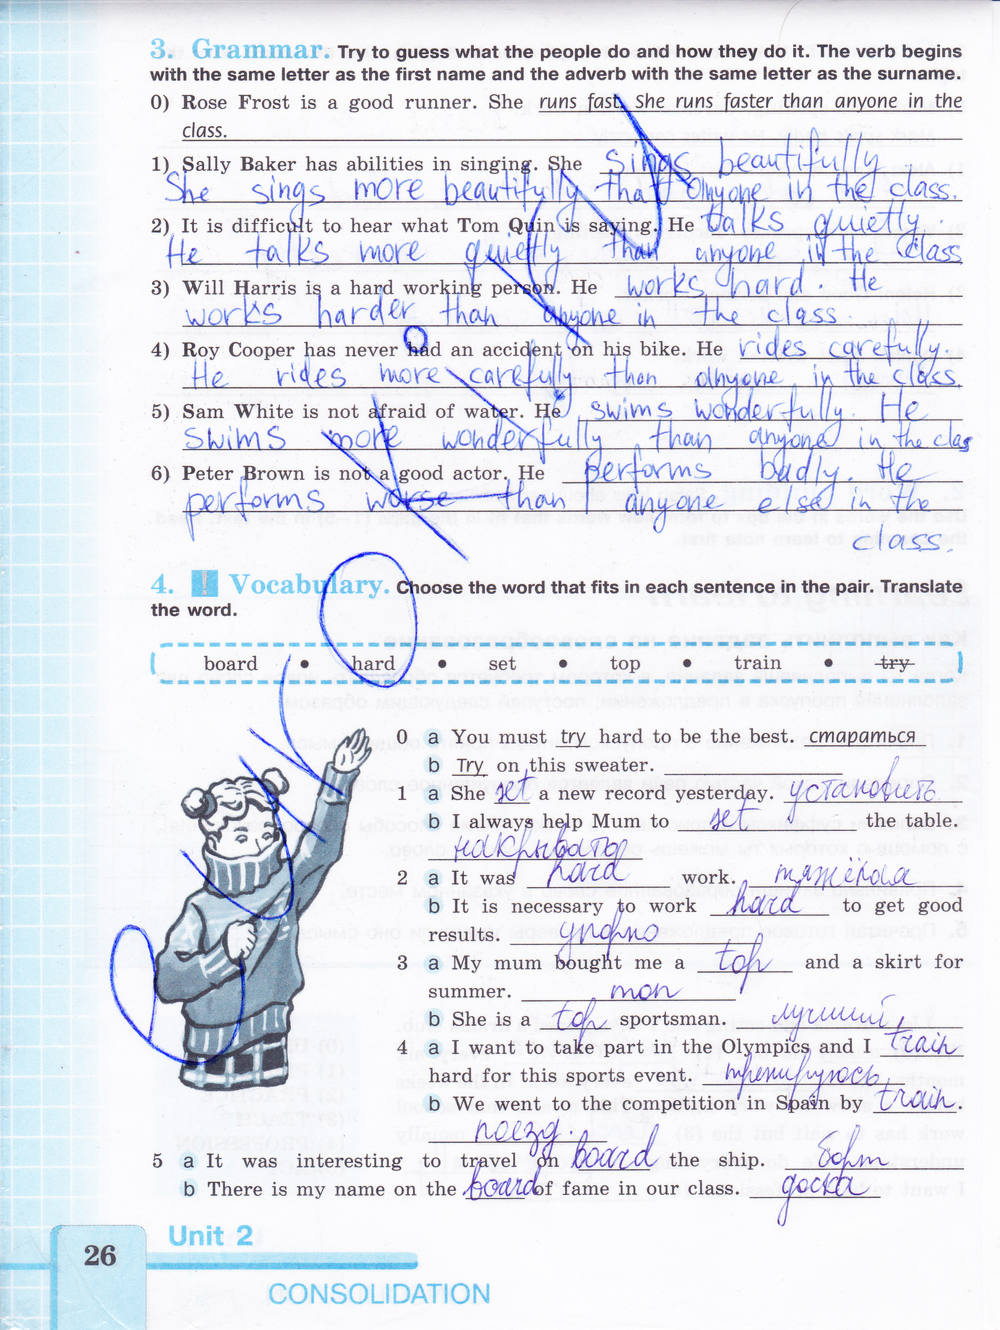 3. Grammar. Try to guess what the people do and how they do it. The verb begins
with the same letter as the first name and the adverb with the same letter as the surname.
0) Rose Frost is a good runner. She runs fast. She runs faster than anyone in the
class.
1) Sally Baker has abilities in singing. She sings beautifully
She sings more beautifully that anyone in the class.
2) It is difficult to hear what Tom Quin is saying. He talks quietly.
He talks more quietly than anyone in the class
3) Will Harris is a hard working person. He works hard. He
works harder than anyone in the class
4) Roy Cooper has never had an accident on his bike. He rides carefully.
He rides more carefully than anyone in the class.
5) Sam White is not afraid of water. He swims wonderfully. He
swims more wonderfully than anyone in the clas
6) Peter Brown is not a good actor. He performs badly. He
performs worse than anyone else in the
class.
4. ! Vocabulary. Choose the word that fits in each sentence in the pair. Translate
the word.
board • hard • set • top • train • try
0 a You must try hard to be the best. стараться
b Try on this sweater.
1 a She set a new record yesterday. установить
b I always help Mum to set the table.
накрывать
2 a It was hard work. тяжёлая
b It is necessary to work hard to get good
results. упорно
3 a My mum bought me a top and a skirt for
summer. топ
b She is a top sportsman. лучший
4 a I want to take part in the Olympics and I train
hard for this sports event. тренируюсь
b We went to the competition in Spain by train.
поезд.
5 a It was interesting to travel on board the ship. борт
b There is my name on the board of fame in our class. доска
Unit 2
26
CONSOLIDATION